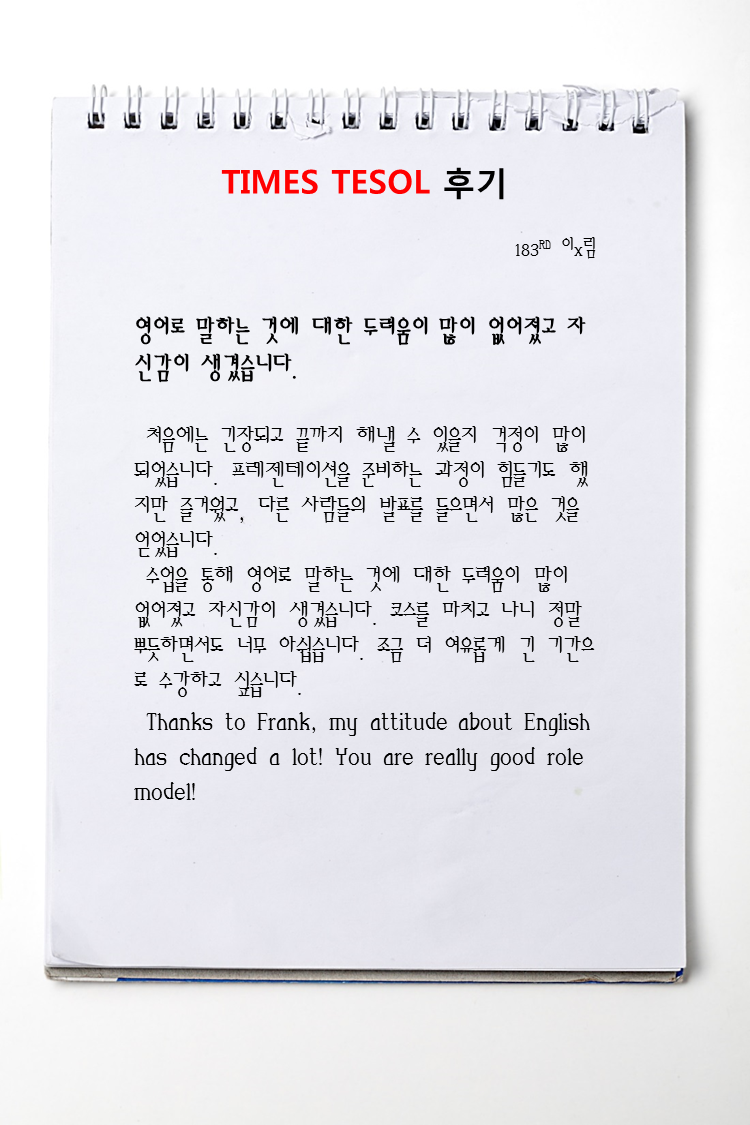 TIMES TESOL 후기
183RD 이x림
영어로 말하는 것에 대한 두려움이 많이 없어졌고 자
신감이 생겼습니다.
처음에는 긴장되고 끝까지 해낼 수 있을지 걱정이 많이
되었습니다. 프레젠테이션을 준비하는 과정이 힘들기도 했
지만 즐거웠고, 다른 사람들의 발표를 들으면서 많은 것을
얻었습니다.
수업을 통해 영어로 말하는 것에 대한 두려움이 많이
없어졌고 자신감이 생겼습니다. 코스를 마치고 나니 정말
뿌듯하면서도 너무 아쉽습니다. 조금 더 여유롭게 긴 기간으
로 수강하고 싶습니다.
Thanks to Frank, my attitude about English
has changed a lot! You are really good role
model!